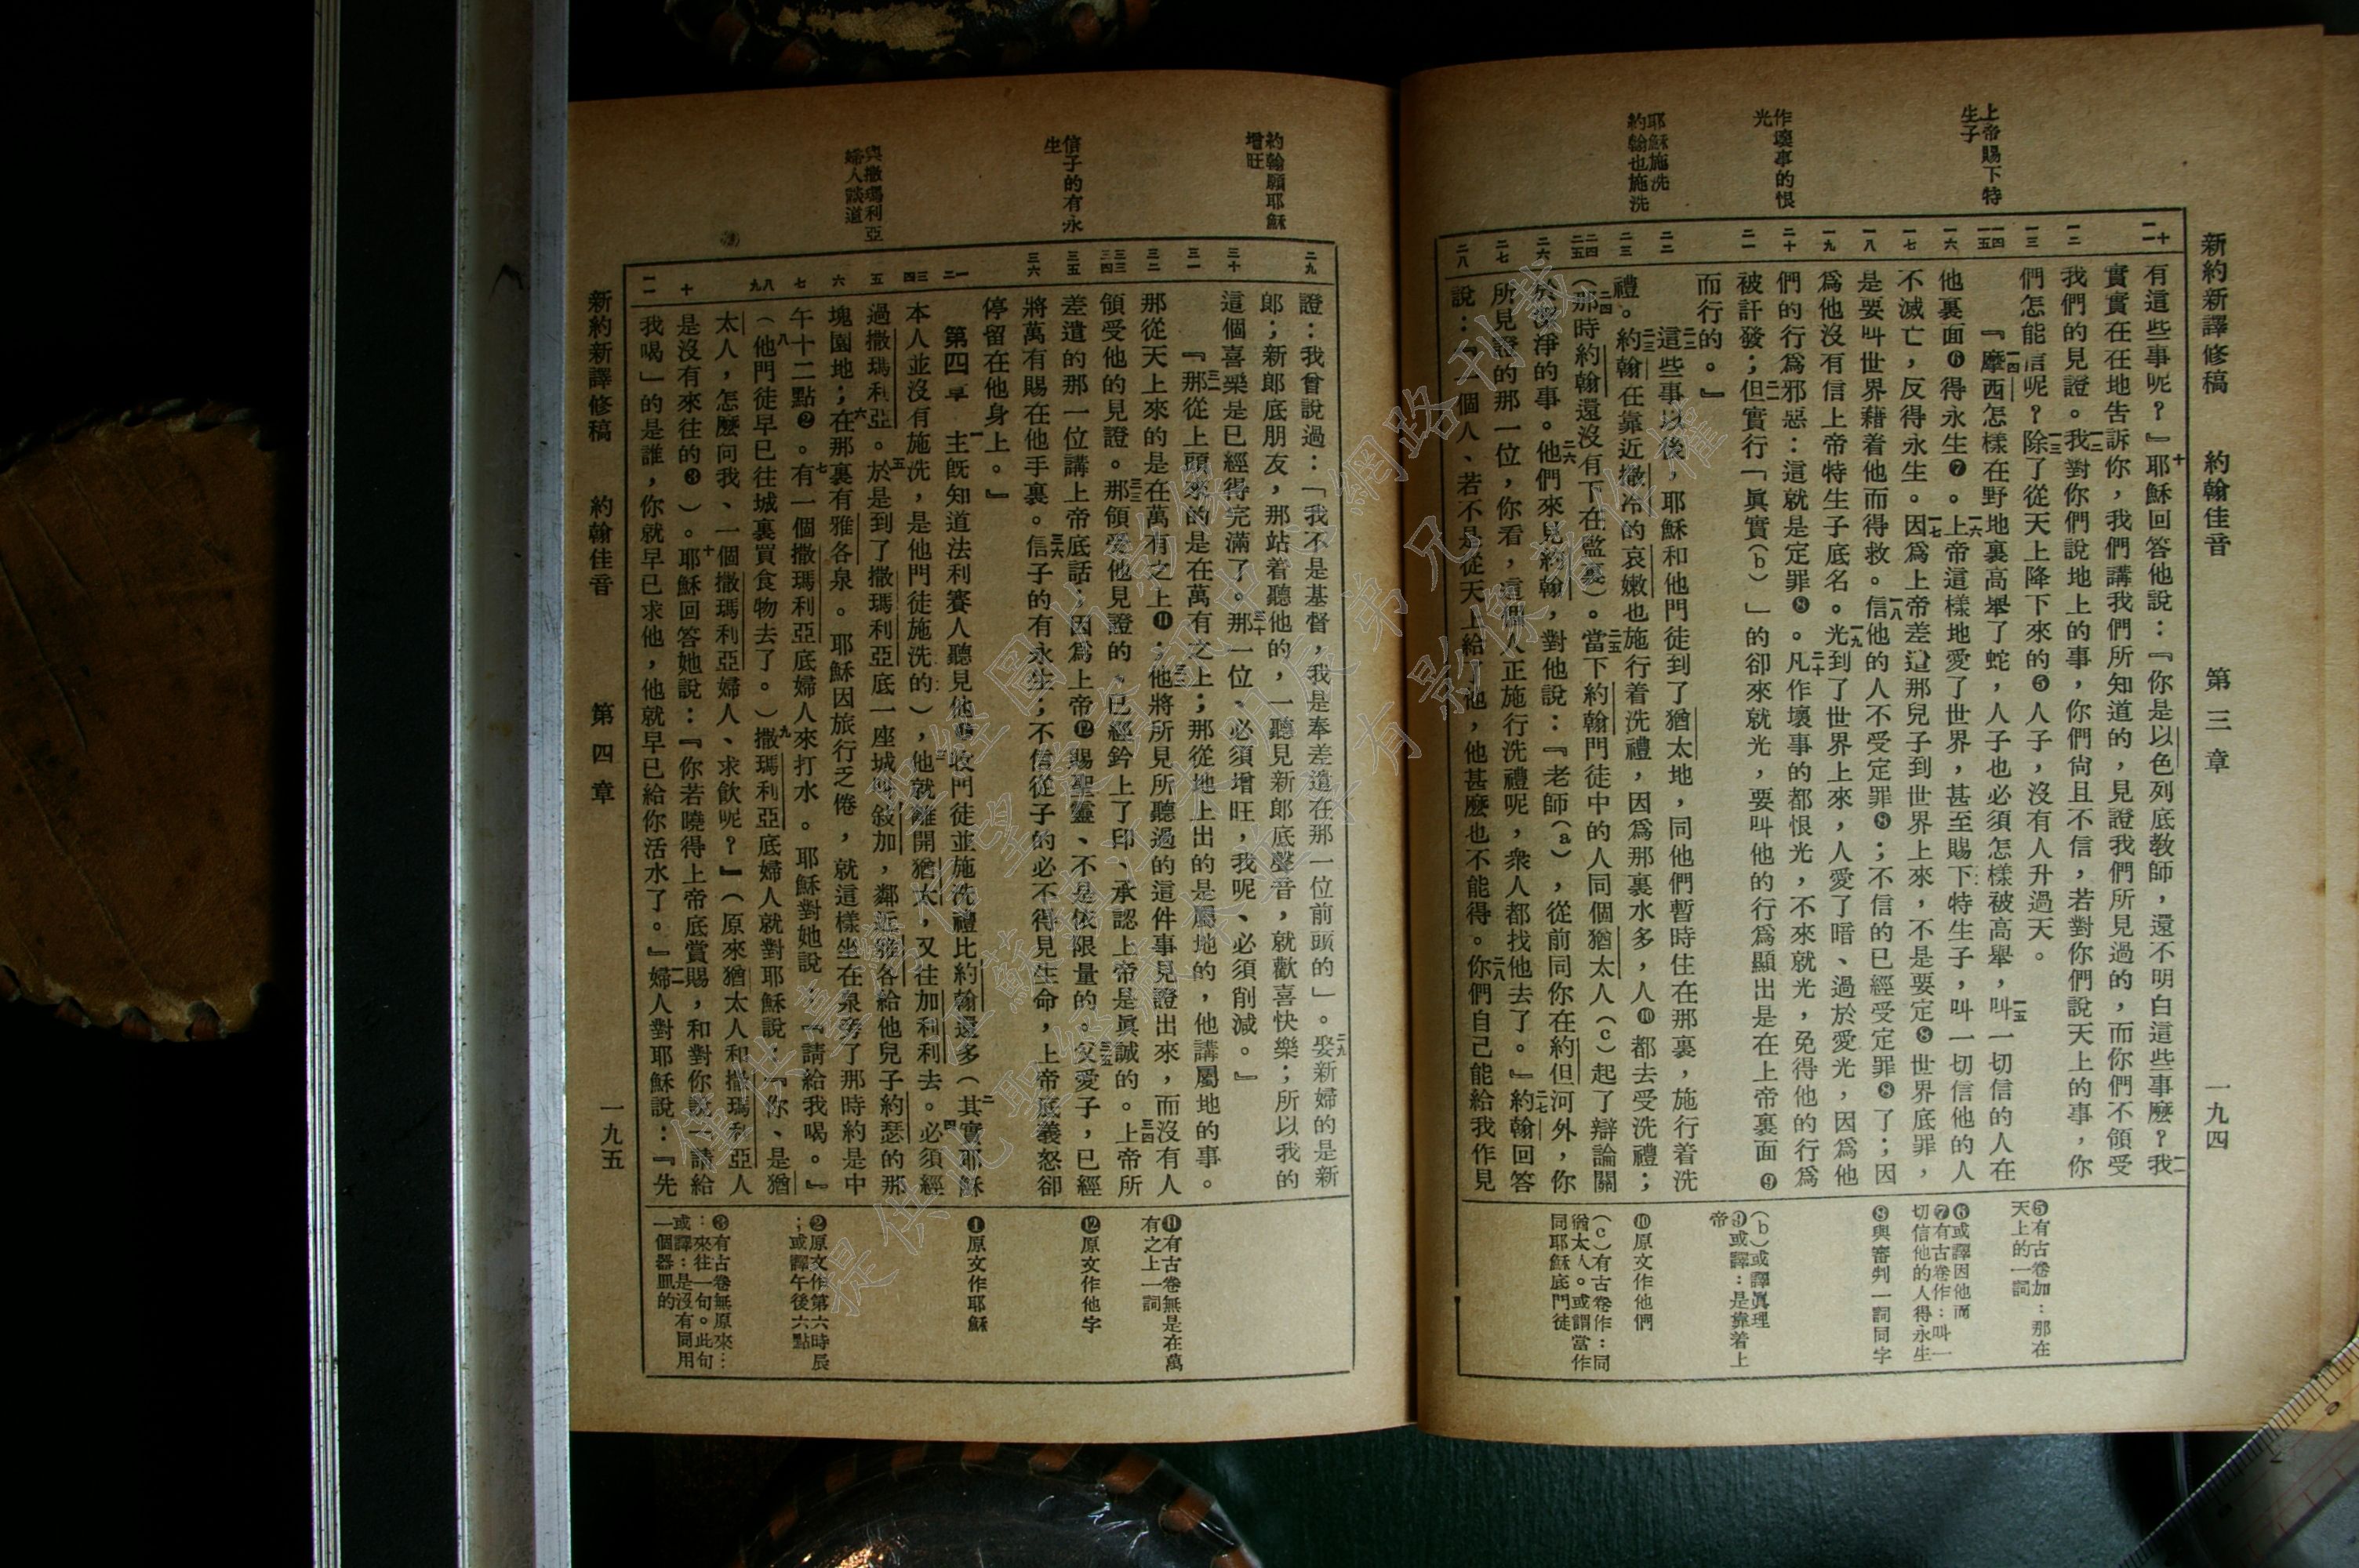 新約新譯修稿　約翰佳音　第三章　一九四
上帝賜下特
生子
作壞事的恨
光
耶穌施洗
約翰也施洗
有這些事呢？』十耶穌回答他說：『你是以色列底教師，還不明白這些事麼？一一我
實實在在地告訴你，我們講我們所知道的，見證我們所見過的，而你們不領受
我們的見證。一二我對你們說地上的事，你們尙且不信，若對你們說天上的事，你
們怎能信呢？一三除了從天上降下來的❺人子，沒有人升過天。
『一四摩西怎樣在野地裏高舉了蛇，人子也必須怎樣被高舉，一五叫一切信的人在
他裏面❻得永生❼。一六上帝這樣地愛了世界，甚至賜下特生子，叫一切信他的人
不滅亡，反得永生。一七因爲上帝差遣那兒子到世界上來，不是要定❽世界底罪，
是要叫世界藉着他而得救。一八信他的人不受定罪❽；不信的已經受定罪❽了；因
爲他沒有信上帝特生子底名。一九光到了世界上來，人愛了暗、過於愛光，因爲他
們的行爲邪惡：這就是定罪❽。二十凡作壞事的都恨光，不來就光，免得他的行爲
被訐發；二一但實行「眞實(b)」的卻來就光，要叫他的行爲顯出是在上帝裏面❾
而行的。』
二二這些事以後，耶穌和他門徒到了猶太地，同他們暫時住在那裏，施行着洗
禮。二三約翰在靠近撒冷的哀嫩也施行着洗禮，因爲那裏水多，人❿都去受洗禮；
（二四那時約翰還沒有下在監裏）。二五當下約翰門徒中的人同個猶太人(c)起了辯論關
於潔淨的事。二六他們來見約翰，對他說：『老師(a)，從前同你在約但河外，你
所見證的那一位，你看，這個人正施行洗禮呢，衆人都找他去了。』二七約翰回答
說：『一個人、若不是從天上給了他，他甚麼也不能得。二八你們自己能給我作見
❺有古卷加：那在
天上的一詞
❻或譯因他而
❼有古卷作：叫一
切信他的人得永生
❽與審判一詞同字
(b)或譯眞理
❾或譯：是靠着上
帝
❿原文作他們
(c)有古卷作：同
猶太人。或謂當作
同耶穌底門徒
約翰願耶穌
增旺
信子的有永
生
與撒瑪利亞
婦人談道
證：我曾說過：「我不是基督，我是奉差遣在那一位前頭的」。二九娶新婦的是新
郎；新郎底朋友，那站着聽他的，一聽見新郎底聲音，就歡喜快樂；所以我的
這個喜樂是已經得完滿了。三十那一位、必須增旺，我呢、必須削減。』
『三一那從上頭來的是在萬有之上；那從地上出的是屬地的，他講屬地的事。
那從天上來的是在萬有之上⓫；三二他將所見所聽過的這件事見證出來，而沒有人
領受他的見證。三三那領受他見證的，已經鈐上了印、承認上帝是眞誠的。三四上帝所
差遣的那一位講上帝底話；因爲上帝⓬賜聖靈、不是依限量的。三五父愛子，已經
將萬有賜在他手裏。三六信子的有永生；不信從子的必不得見生命，上帝底義怒卻
停留在他身上。』
第四章　一主旣知道法利賽人聽見他❶收門徒並施洗禮比約翰還多（二其實耶穌
本人並沒有施洗，是他門徒施洗的），三他就離開猶太，又往加利利去。四必須經
過撒瑪利亞。五於是到了撒瑪利亞底一座城叫敍加，鄰近雅各給他兒子約瑟的那
塊園地；六在那裏有雅各泉。耶穌因旅行乏倦，就這樣坐在泉旁了那時約是中
午十二點❷。七有一個撒瑪利亞底婦人來打水。耶穌對她說：『請給我喝。』
（八他門徒早已往城裏買食物去了。）九撒瑪利亞底婦人就對耶穌說：『你、是猶
太人，怎麼問我、一個撒瑪利亞婦人、求飲呢？』（原來猶太人和撒瑪利亞人
是沒有來往的❸）。十耶穌回答她說：『你若曉得上帝底賞賜，和對你說「請給
我喝」的是誰，你就早已求他，他就早已給你活水了。』一一婦人對耶穌說：『先
⓫有古卷無是在萬
有之上一詞
⓬原文作他字
❶原文作耶穌
❷原文作第六時辰
；或譯午後六點
❸有古卷無原來…
：來往一句。此句
或譯：是沒有同用
一個器皿的
新約新譯修稿　約翰佳音　第四章　一九五